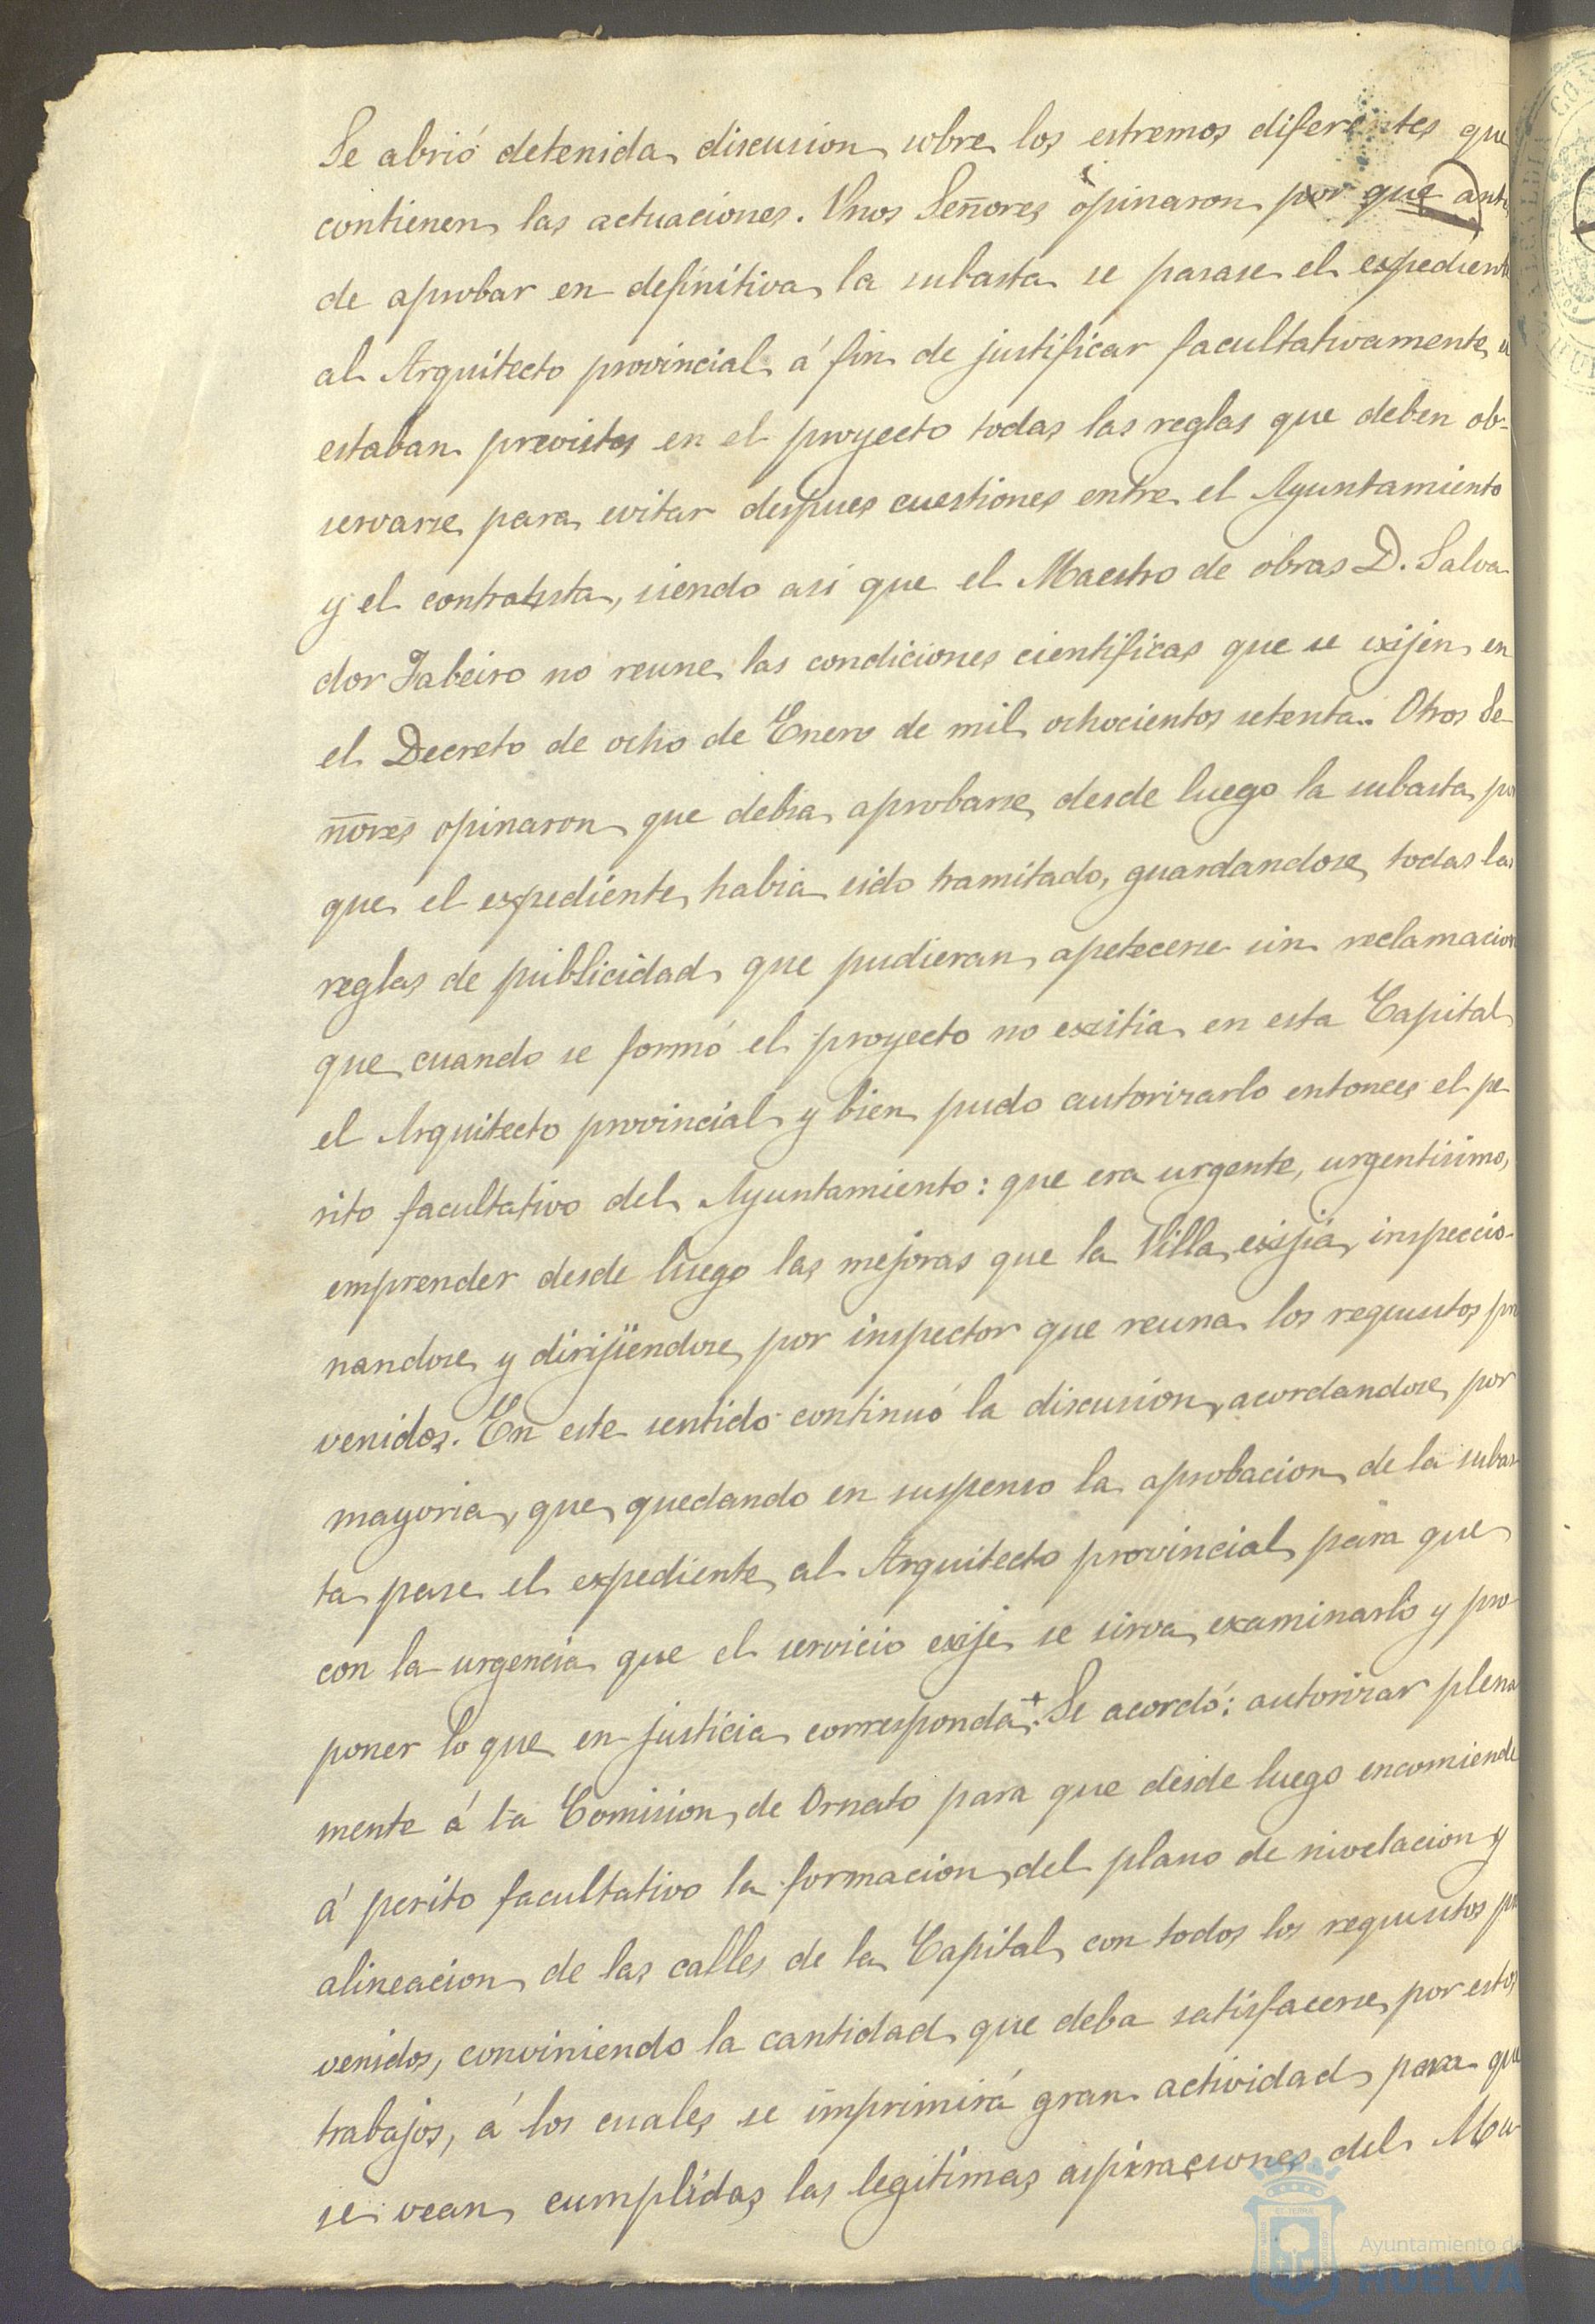 Se abrió detenida discusion sobre los estremos diferentes que
contienen las actuaciones. Unos Señores opinaron por que antes
de aprobar en definitiva la subasta se pasase el expediente
al Arquitecto provincial á fin de justificar facultativamente si
estaban previstas en el proyecto todas las reglas que deben ob-
servarse para evitar despues cuestiones entre el Ayuntamiento
y el contratista, siendo asi que el Maestro de obras D. Salva
dor Tabeiro no reune las condiciones cientificas que se exijen en
el Decreto de ocho de Enero de mil ochocientos setenta. Otros Se-
ñores opinaron que debia aprobarse desde luego la subasta por
que el expediente habia sido tramitado, guardandose todas las
reglas de publicidad que pudieran apetecerse sin reclamacion
que cuando se formó el proyecto no existia en esta Capital
el Arquitecto provincial y bien pudo autorizarlo entonces el pe
rito facultativo del Ayuntamiento: que era urgente, urgentisimo,
emprender desde luego las mejoras que la Villa exijia, inspeccio-
nandose y dirijiendose por inspector que reuna los requisitos pre
venidos. En este sentido continuó la discusion, acordandose por
mayoria, que quedando en suspenso la aprobacion de la subas
ta pase el expediente al Arquitecto provincial para que
con la urgencia que el servicio exije se sirva examinarlo y pro-
poner lo que en justicia corresponda.+ Se acordó: autorizar plena
mente á la Comision de Ornato para que desde luego encomiende
á perito facultativo la formacion del plano de nivelacion y
alineacion de las calles de la Capital con todos los requisitos pre
venidos, conviniendo la cantidad que deba satisfacerse por estos
trabajos, á los cuales se imprimirá gran actividad para que
se vean cumplidas las legitimas aspiraciones del Mu-
Ayuntamiento de
HUELVA